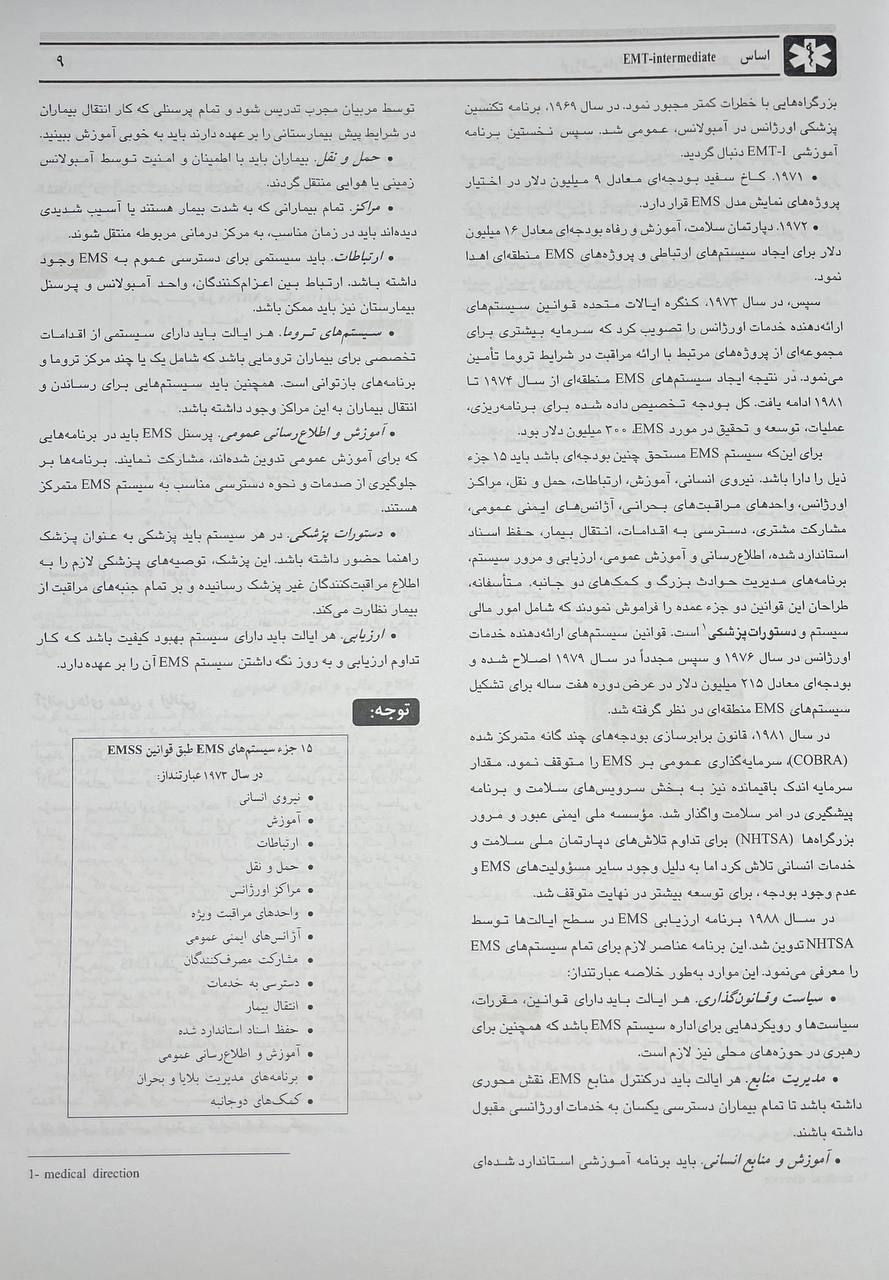 اساس EMT-intermediate
۹
بزرگراه‌هایی با خطرات کمتر مجبور نمود. در سال ۱۹۶۹، برنامه تکنسین
پزشکی اورژانس در آمبولانس، عمومی شد. سپس نخستین برنامه
آموزشی EMT-I دنبال گردید.
• ۱۹۷۱. کاخ سفید بودجه‌ای معادل ۹ میلیون دلار در اختیار
پروژه‌های نمایش مدل EMS قرار دارد.
• ۱۹۷۲. دپارتمان سلامت، آموزش و رفاه بودجه‌ای معادل ۱۶ میلیون
دلار برای ایجاد سیستم‌های ارتباطی و پروژه‌های EMS منطقه‌ای اهدا
نمود.
سپس، در سال ۱۹۷۳، کنگره ایالات متحده قوانین سیستم‌های
ارائه‌دهنده خدمات اورژانس را تصویب کرد که سرمایه بیشتری برای
مجموعه‌ای از پروژه‌های مرتبط با ارائه مراقبت در شرایط تروما تأمین
می‌نمود. در نتیجه ایجاد سیستم‌های EMS منطقه‌ای از سال ۱۹۷۴ تا
۱۹۸۱ ادامه یافت. کل بودجه تخصیص داده شده برای برنامه‌ریزی،
عملیات، توسعه و تحقیق در مورد EMS، ۳۰۰ میلیون دلار بود.
برای این‌که سیستم EMS مستحق چنین بودجه‌ای باشد باید ۱۵ جزء
ذیل را دارا باشد. نیروی انسانی، آموزش، ارتباطات، حمل و نقل، مراکز
اورژانس، واحدهای مراقبت‌های بحرانی، آژانس‌های ایمنی عمومی،
مشارکت مشتری، دسترسی به اقدامات، انتقال بیمار، حفظ اسناد
استاندارد شده، اطلاع‌رسانی و آموزش عمومی، ارزیابی و مرور سیستم،
برنامه‌های مدیریت حوادث بزرگ و کمک‌های دو جانبه. متأسفانه،
طراحان این قوانین دو جزء عمده را فراموش نمودند که شامل امور مالی
سیستم و دستورات پزشکی۱ است. قوانین سیستم‌های ارائه‌دهنده خدمات
اورژانس در سال ۱۹۷۶ و سپس مجدداً در سال ۱۹۷۹ اصلاح شده و
بودجه‌ای معادل ۲۱۵ میلیون دلار در عرض دوره هفت ساله برای تشکیل
سیستم‌های EMS منطقه‌ای در نظر گرفته شد.
در سال ۱۹۸۱، قانون برابرسازی بودجه‌های چند گانه متمرکز شده
(COBRA)، سرمایه‌گذاری عمومی بر EMS را متوقف نمود. مقدار
سرمایه اندک باقیمانده نیز به بخش سرویس‌های سلامت و برنامه
پیشگیری در امر سلامت واگذار شد. مؤسسه ملی ایمنی عبور و مرور
بزرگراه‌ها (NHTSA) برای تداوم تلاش‌های دپارتمان ملی سلامت و
خدمات انسانی تلاش کرد اما به دلیل وجود سایر مسؤولیت‌های EMS و
عدم وجود بودجه ، برای توسعه بیشتر در نهایت متوقف شد.
در سال ۱۹۸۸ برنامه ارزیابی EMS در سطح ایالت‌ها توسط
NHTSA تدوین شد. این برنامه عناصر لازم برای تمام سیستم‌های EMS
را معرفی می‌نمود. این موارد به‌طور خلاصه عبارتند‌از:
• سیاست و قانون‌گذاری. هر ایالت باید دارای قوانین، مقررات،
سیاست‌ها و رویکردهایی برای اداره سیستم EMS باشد که همچنین برای
رهبری در حوزه‌های محلی نیز لازم است.
• مدیریت منابع. هر ایالت باید درکنترل منابع EMS، نقش محوری
داشته باشد تا تمام بیماران دسترسی یکسان به خدمات اورژانسی مقبول
داشته باشند.
• آموزش و منابع انسانی. باید برنامه آموزشی استاندارد شده‌ای
توسط مربیان مجرب تدریس شود و تمام پرسنلی که کار انتقال بیماران
در شرایط پیش بیمارستانی را بر عهده دارند باید به خوبی آموزش ببینید.
• حمل و نقل. بیماران باید با اطمینان و امنیت توسط آمبولانس
زمینی یا هوایی منتقل گردند.
• مراکز. تمام بیمارانی که به شدت بیمار هستند یا آسیب شدیدی
دیده‌اند باید در زمان مناسب، به مرکز درمانی مربوطه منتقل شوند.
• ارتباطات. باید سیستمی برای دسترسی عموم به EMS وجود
داشته باشد. ارتباط بین اعزام‌کنندگان، واحد آمبولانس و پرسنل
بیمارستان نیز باید ممکن باشد.
• سیستم‌های تروما. هر ایالت باید دارای سیستمی از اقدامات
تخصصی برای بیماران ترومایی باشد که شامل یک یا چند مرکز تروما و
برنامه‌های بازتوانی است. همچنین باید سیستم‌هایی برای رساندن و
انتقال بیماران به این مراکز وجود داشته باشد.
• آموزش و اطلاع‌رسانی عمومی. پرسنل EMS باید در برنامه‌هایی
که برای آموزش عمومی تدوین شده‌اند، مشارکت نمایند. برنامه‌ها بر
جلوگیری از صدمات و نحوه دسترسی مناسب به سیستم EMS متمرکز
هستند.
• دستورات پزشکی. در هر سیستم باید پزشکی به عنوان پزشک
راهنما حضور داشته باشد. این پزشک، توصیه‌های پزشکی لازم را به
اطلاع مراقبت‌کنندگان غیر پزشک رسانیده و بر تمام جنبه‌های مراقبت از
بیمار نظارت می‌کند.
• ارزیابی. هر ایالت باید دارای سیستم بهبود کیفیت باشد که کار
تداوم ارزیابی و به روز نگه داشتن سیستم EMS آن را بر عهده دارد.
توجه:
۱۵ جزء سیستم‌های EMS طبق قوانین EMSS
در سال ۱۹۷۳ عبارتنداز:
• نیروی انسانی
• آموزش
• ارتباطات
• حمل و نقل
• مراکز اورژانس
• واحدهای مراقبت ویژه
• آژانس‌های ایمنی عمومی
• مشارکت مصرف‌کنندگان
• دسترسی به خدمات
• انتقال بیمار
• حفظ اسناد استاندارد شده
• آموزش و اطلاع‌رسانی عمومی
• برنامه‌های مدیریت بلایا و بحران
• کمک‌های دوجانبه
1- medical direction